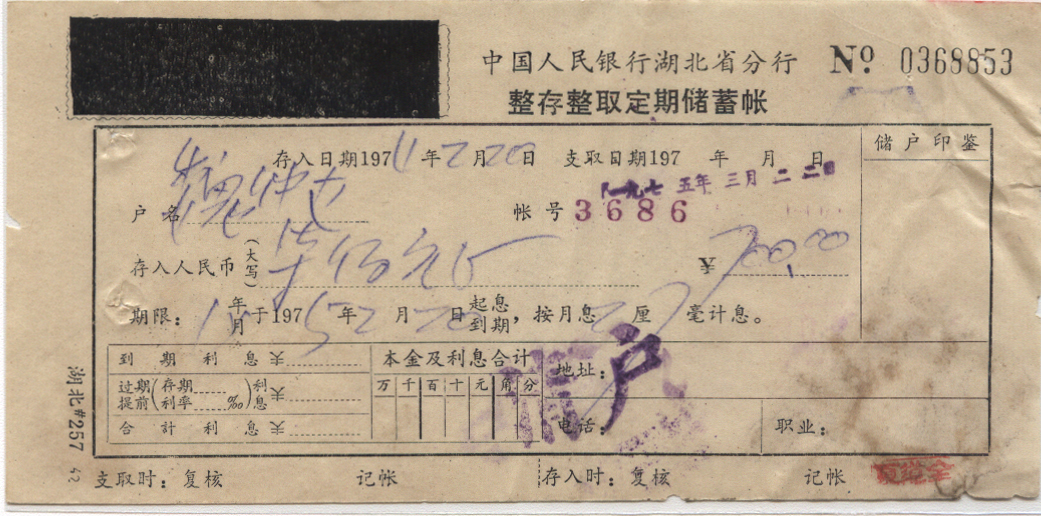 中国人民银行湖北省分行 № 0368853
整存整取定期储蓄帐
储户印鉴
存入日期1974年2月20日 支取日期197 年 月 日
一九七五年三月二二日
户名 帐号 3686
存入人民币(大写)柒佰元 ¥700.00
期限:1年/月于1975年2月20日起息/到期,按月息27厘 毫计息。
到期利息¥ 本金及利息合计 地址:
万千百十元角分
过期/提前(存期/利率 ‰)利息¥
户
合計利息¥ 电话: 职业:
湖北#257
支取时:复核 记帐 存入时:复核 记帐